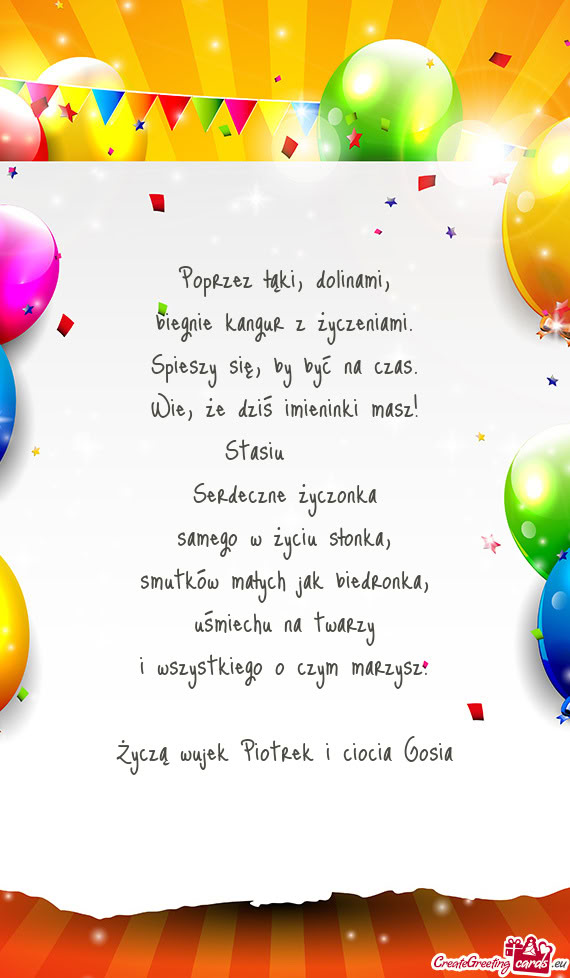 Poprzez łąki, dolinami,
biegnie kangur z życzeniami.
Spieszy się, by być na czas.
Wie, że dziś imieninki masz!
Stasiu
Serdeczne życzonka
samego w życiu słonka,
smutków małych jak biedronka,
uśmiechu na twarzy
i wszystkiego o czym marzysz.
Życzą wujek Piotrek i ciocia Gosia
CreateGreetingcards.eu